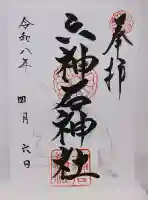 奉拝
六神石神社
令和八年
四月六日